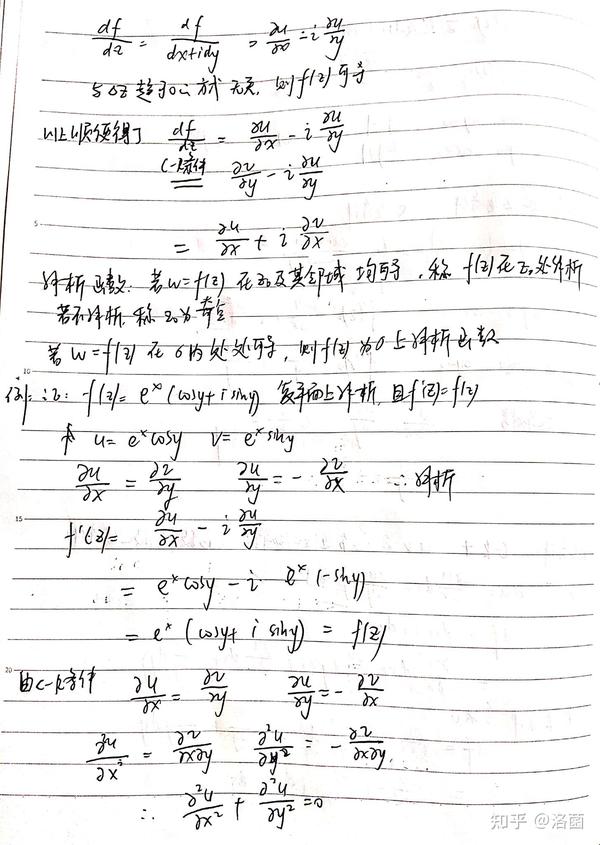 df/dz = df/(dx+idy) = ∂u/∂x - i ∂u/∂y
与Δz趋于0的方式无关，则f(z)可导
以上顺便得了 df/dz = ∂u/∂x - i ∂u/∂y
C-R条件 ∂v/∂y - i ∂u/∂y
5
= ∂u/∂x + i ∂v/∂x
解析函数：若w=f(z) 在z₀及其邻域均可导，称f(z)在z₀处解析
若不解析，称z₀为奇点
10
若w=f(z) 在σ内处处可导，则f(z)为σ上解析函数
例：证：f(z)= eˣ(cosy+isiny) 复平面上解析，且f'(z)=f(z)
u= eˣcosy v= eˣsiny
∂u/∂x = ∂v/∂y ∂u/∂y = - ∂v/∂x ∴解析
15
f'(z)= ∂u/∂x - i ∂u/∂y
= eˣcosy - i eˣ(-siny)
= eˣ(cosy+ i siny) = f(z)
20
由C-R条件 ∂u/∂x = ∂v/∂y ∂u/∂y = - ∂v/∂x
∂²u/∂x² = ∂v/∂x∂y ∂²u/∂y² = - ∂v/∂x∂y
∴ ∂²u/∂x² + ∂²u/∂y² =0
知乎 @洛菌